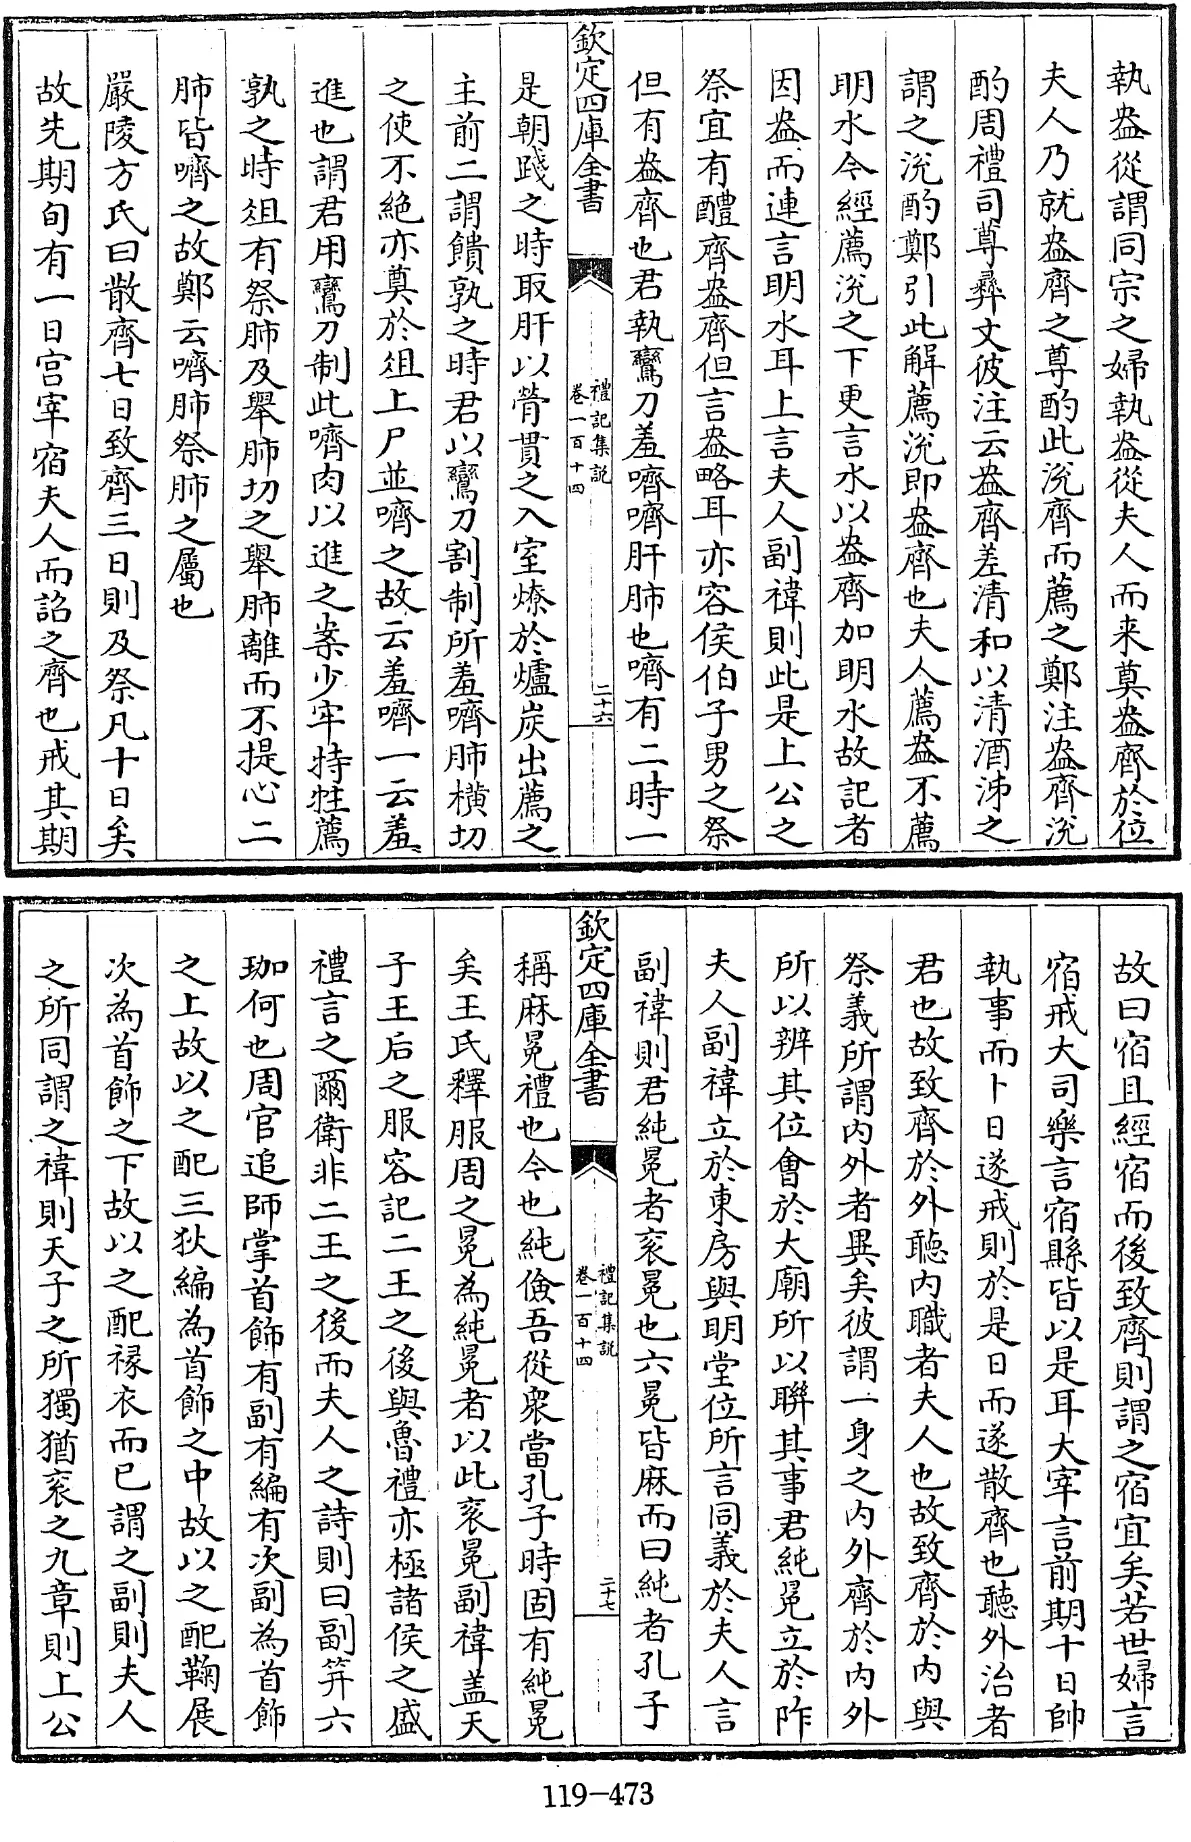 執盎從謂同宗之婦執盎從夫人而来奠盎齊於位
夫人乃就盎齊之尊酌此涚齊而薦之鄭注盎齊涚
酌周禮司尊彝文彼注云盎齊差清和以清酒泲之
謂之涚酌鄭引此解薦涚即盎齊也夫人薦盎不薦
明水今經薦涚之下更言水以盎齊加明水故記者
因盎而連言明水耳上言夫人副褘則此是上公之
祭宜有醴齊盎齊但言盎略耳亦容侯伯子男之祭
但有盎齊也君執鸞刀羞嚌嚌肝肺也嚌有二時一
欽定四庫全書
禮記集説
卷一百十四
二十六
是朝踐之時取肝以膋貫之入室燎於爐炭出薦之
主前二謂饋孰之時君以鸞刀割制所羞嚌肺横切
之使不絶亦奠於俎上尸並嚌之故云羞嚌一云羞
進也謂君用鸞刀制此嚌肉以進之案少牢特牲薦
孰之時俎有祭肺及舉肺切之舉肺離而不提心二
肺皆嚌之故鄭云嚌肺祭肺之屬也
嚴陵方氏曰散齊七日致齊三日則及祭凡十日矣
故先期旬有一日宫宰宿夫人而詔之齊也戒其期
故曰宿且經宿而後致齊則謂之宿宜矣若世婦言
宿戒大司樂言宿縣皆以是耳大宰言前期十日帥
執事而卜日遂戒則於是日而遂散齊也聽外治者
君也故致齊於外聽内職者夫人也故致齊於内與
祭義所謂内外者異矣彼謂一身之内外齊於内外
所以辨其位會於大廟所以聯其事君純冕立於阼
夫人副褘立於東房與明堂位所言同義於夫人言
副褘則君純冕者衮冕也六冕皆麻而曰純者孔子
欽定四庫全書
禮記集説
卷一百十四
二十七
稱麻冕禮也今也純儉吾從衆當孔子時固有純冕
矣王氏釋服周之冕為純冕者以此衮冕副褘蓋天
子王后之服容記二王之後與魯禮亦極諸侯之盛
禮言之爾衛非二王之後而夫人之詩則曰副笄六
珈何也周官追師掌首飾有副有編有次副為首飾
之上故以之配三狄編為首飾之中故以之配鞠展
次為首飾之下故以之配褖衣而已謂之副則夫人
之所同謂之褘則天子之所獨猶衮之九章則上公
119-473